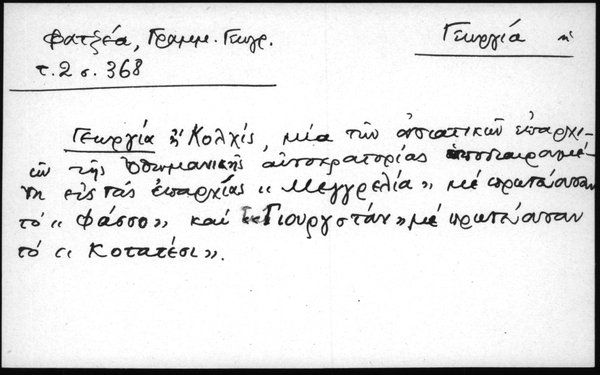 Φατζέα, Γραμμ. Γεωγρ.
τ. 2 σ. 368
Γεωργία ἡ
Γεωργία ἤ Κολχίς, μία τῶν ἀσιατικῶν ἐπαρχι-
ῶν τῆς Ὀθωμανικῆς αὐτοκρατορίας ὑποδιαιραμέ-
νη εἰς τάς ἐπαρχίας "Μεγγρελία" μέ πρωτεύουσαν
τό "Φάσσο" καί "Γιουργστάν" μέ πρωτεύουσαν
τό "Κοτατέσι".